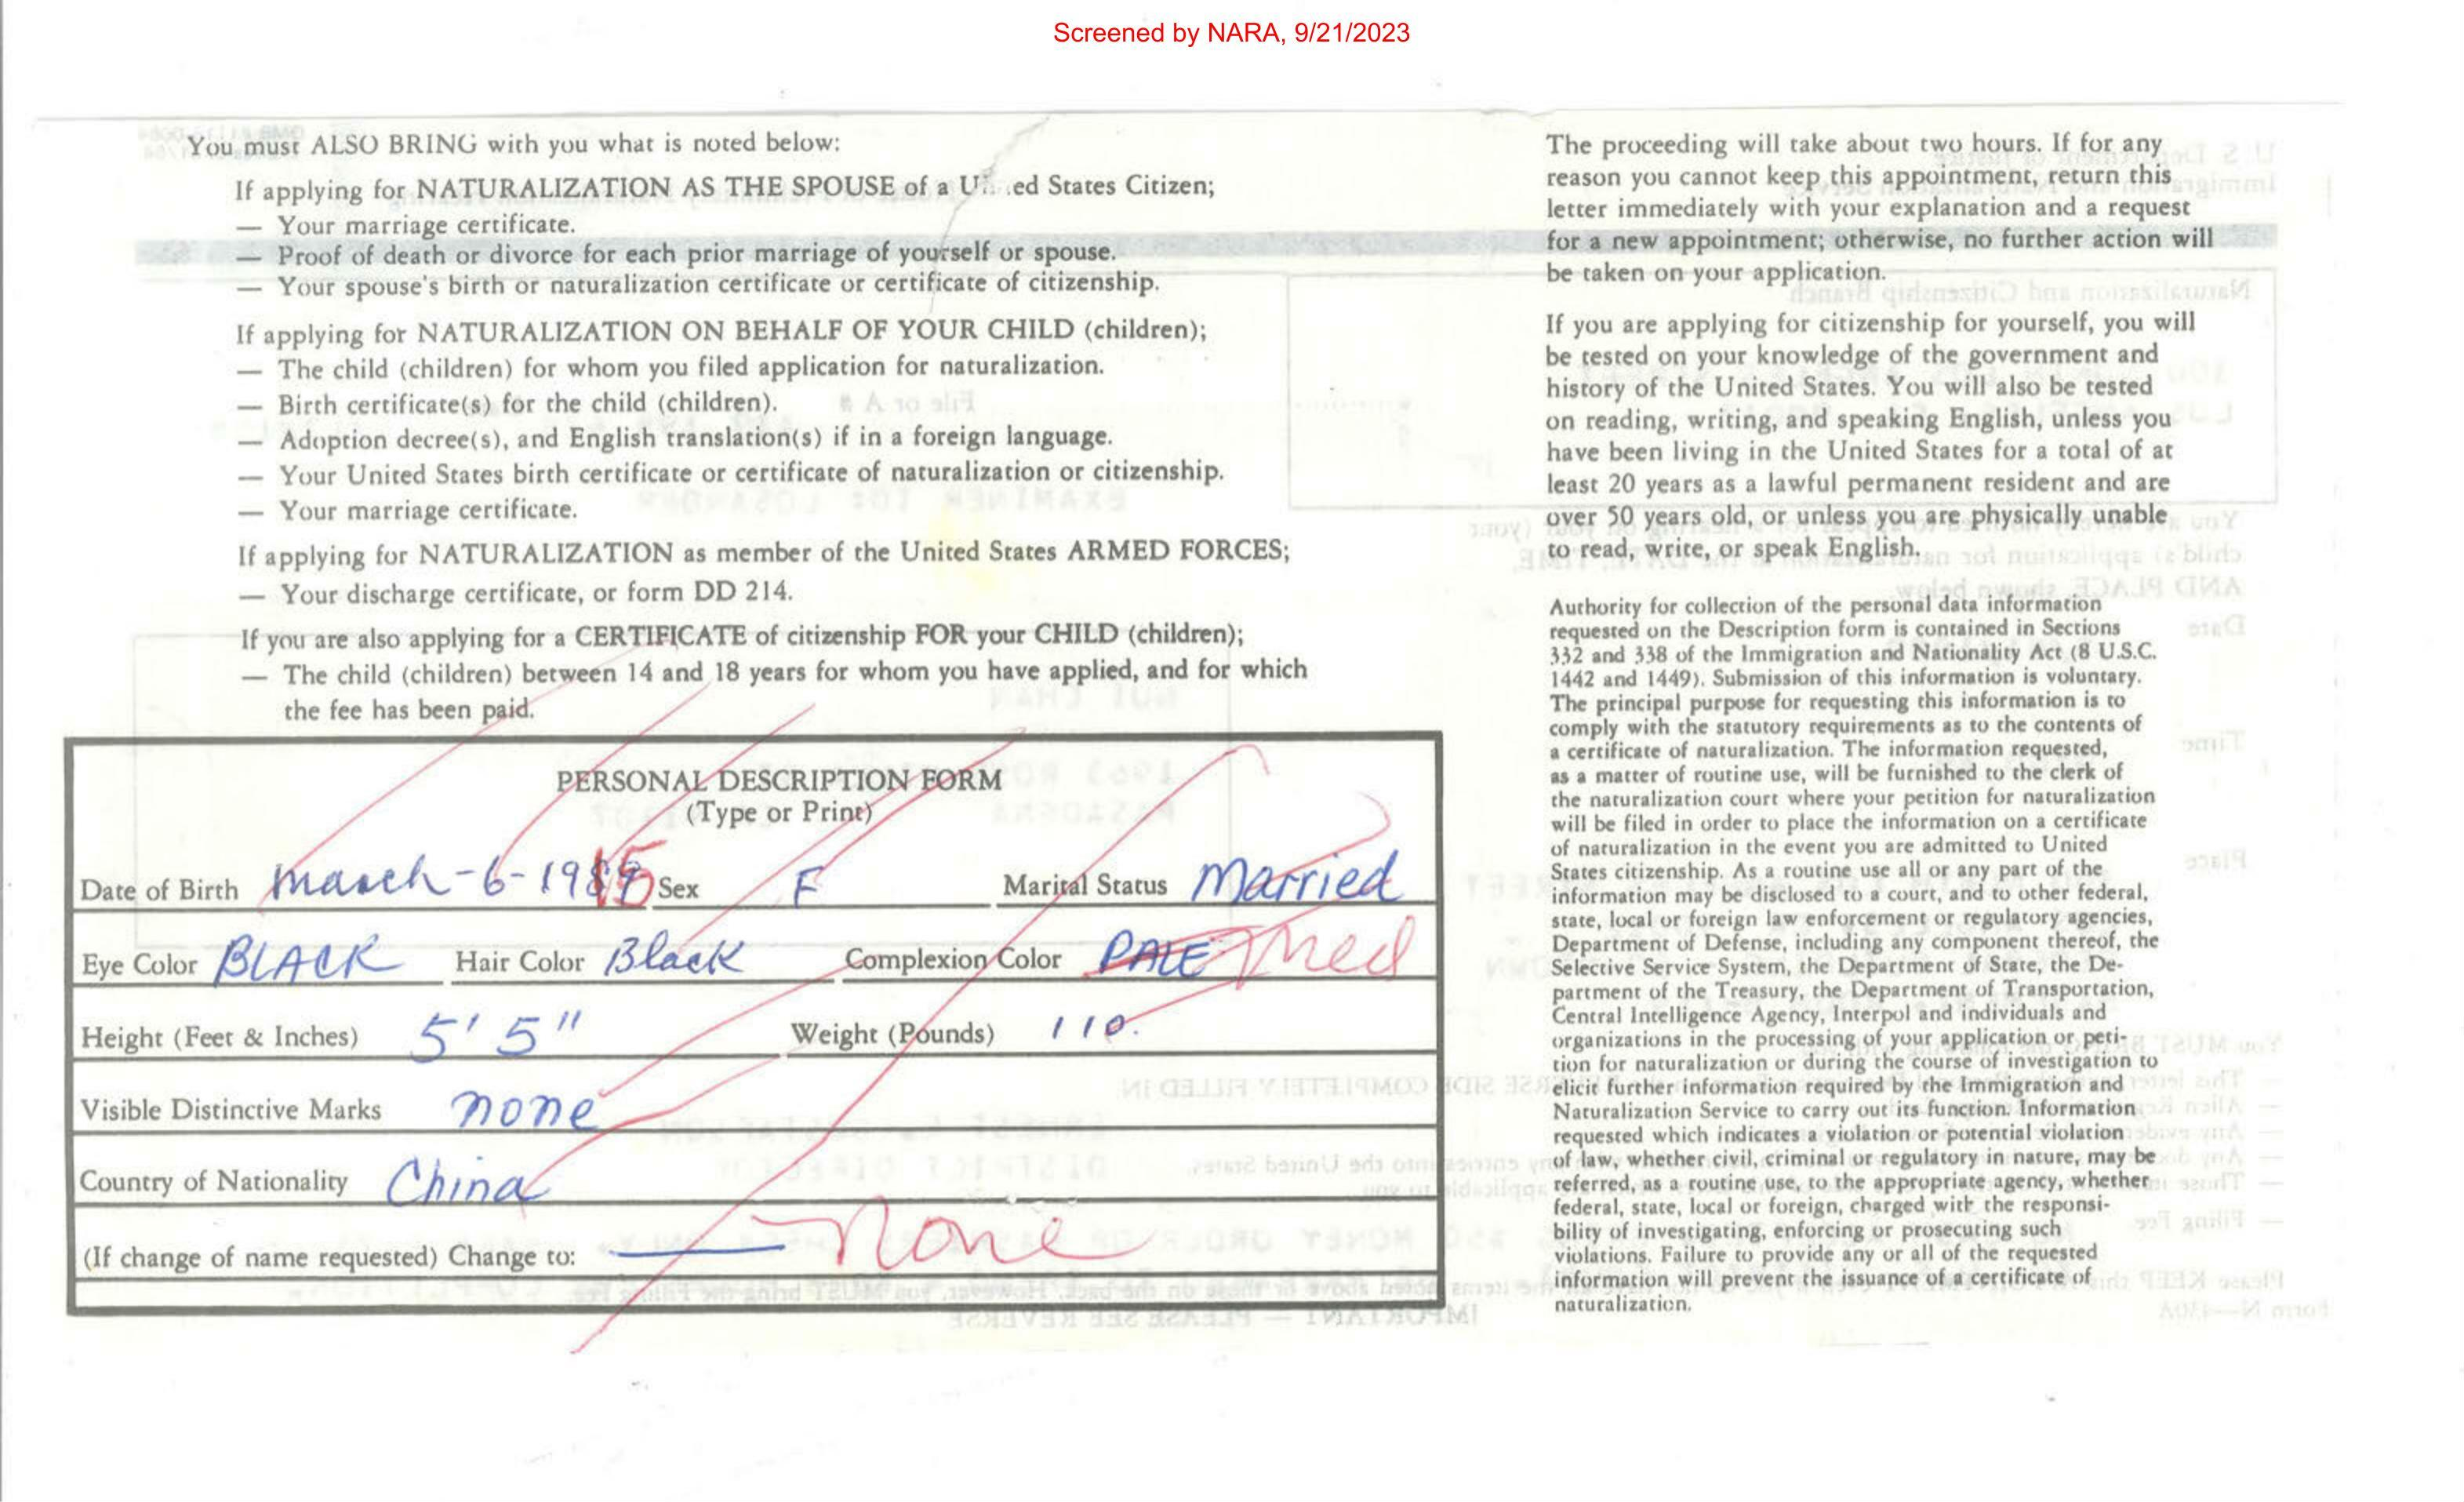 Screened by NARA, 9/21/2023
You must ALSO BRING with you what is noted below:
If applying for NATURALIZATION AS THE SPOUSE of a United States Citizen;
— Your marriage certificate.
— Proof of death or divorce for each prior marriage of yourself or spouse.
— Your spouse's birth or naturalization certificate or certificate of citizenship.
If applying for NATURALIZATION ON BEHALF OF YOUR CHILD (children);
— The child (children) for whom you filed application for naturalization.
— Birth certificate(s) for the child (children).
— Adoption decree(s), and English translation(s) if in a foreign language.
— Your United States birth certificate or certificate of naturalization or citizenship.
— Your marriage certificate.
If applying for NATURALIZATION as member of the United States ARMED FORCES;
— Your discharge certificate, or form DD 214.
If you are also applying for a CERTIFICATE of citizenship FOR your CHILD (children);
— The child (children) between 14 and 18 years for whom you have applied, and for which
the fee has been paid.
PERSONAL DESCRIPTION FORM
(Type or Print)
Date of Birth March-6-19 15 Sex F Marital Status Married
Eye Color BLACK Hair Color Black Complexion Color PALE Med
Height (Feet & Inches) 5' 5" Weight (Pounds) 110.
Visible Distinctive Marks none
Country of Nationality China
(If change of name requested) Change to: — None
The proceeding will take about two hours. If for any
reason you cannot keep this appointment, return this
letter immediately with your explanation and a request
for a new appointment; otherwise, no further action will
be taken on your application.
If you are applying for citizenship for yourself, you will
be tested on your knowledge of the government and
history of the United States. You will also be tested
on reading, writing, and speaking English, unless you
have been living in the United States for a total of at
least 20 years as a lawful permanent resident and are
over 50 years old, or unless you are physically unable
to read, write, or speak English.
Authority for collection of the personal data information
requested on the Description form is contained in Sections
332 and 338 of the Immigration and Nationality Act (8 U.S.C.
1442 and 1449). Submission of this information is voluntary.
The principal purpose for requesting this information is to
comply with the statutory requirements as to the contents of
a certificate of naturalization. The information requested,
as a matter of routine use, will be furnished to the clerk of
the naturalization court where your petition for naturalization
will be filed in order to place the information on a certificate
of naturalization in the event you are admitted to United
States citizenship. As a routine use all or any part of the
information may be disclosed to a court, and to other federal,
state, local or foreign law enforcement or regulatory agencies,
Department of Defense, including any component thereof, the
Selective Service System, the Department of State, the De-
partment of the Treasury, the Department of Transportation,
Central Intelligence Agency, Interpol and individuals and
organizations in the processing of your application or peti-
tion for naturalization or during the course of investigation to
elicit further information required by the Immigration and
Naturalization Service to carry out its function. Information
requested which indicates a violation or potential violation
of law, whether civil, criminal or regulatory in nature, may be
referred, as a routine use, to the appropriate agency, whether
federal, state, local or foreign, charged with the responsi-
bility of investigating, enforcing or prosecuting such
violations. Failure to provide any or all of the requested
information will prevent the issuance of a certificate of
naturalization.